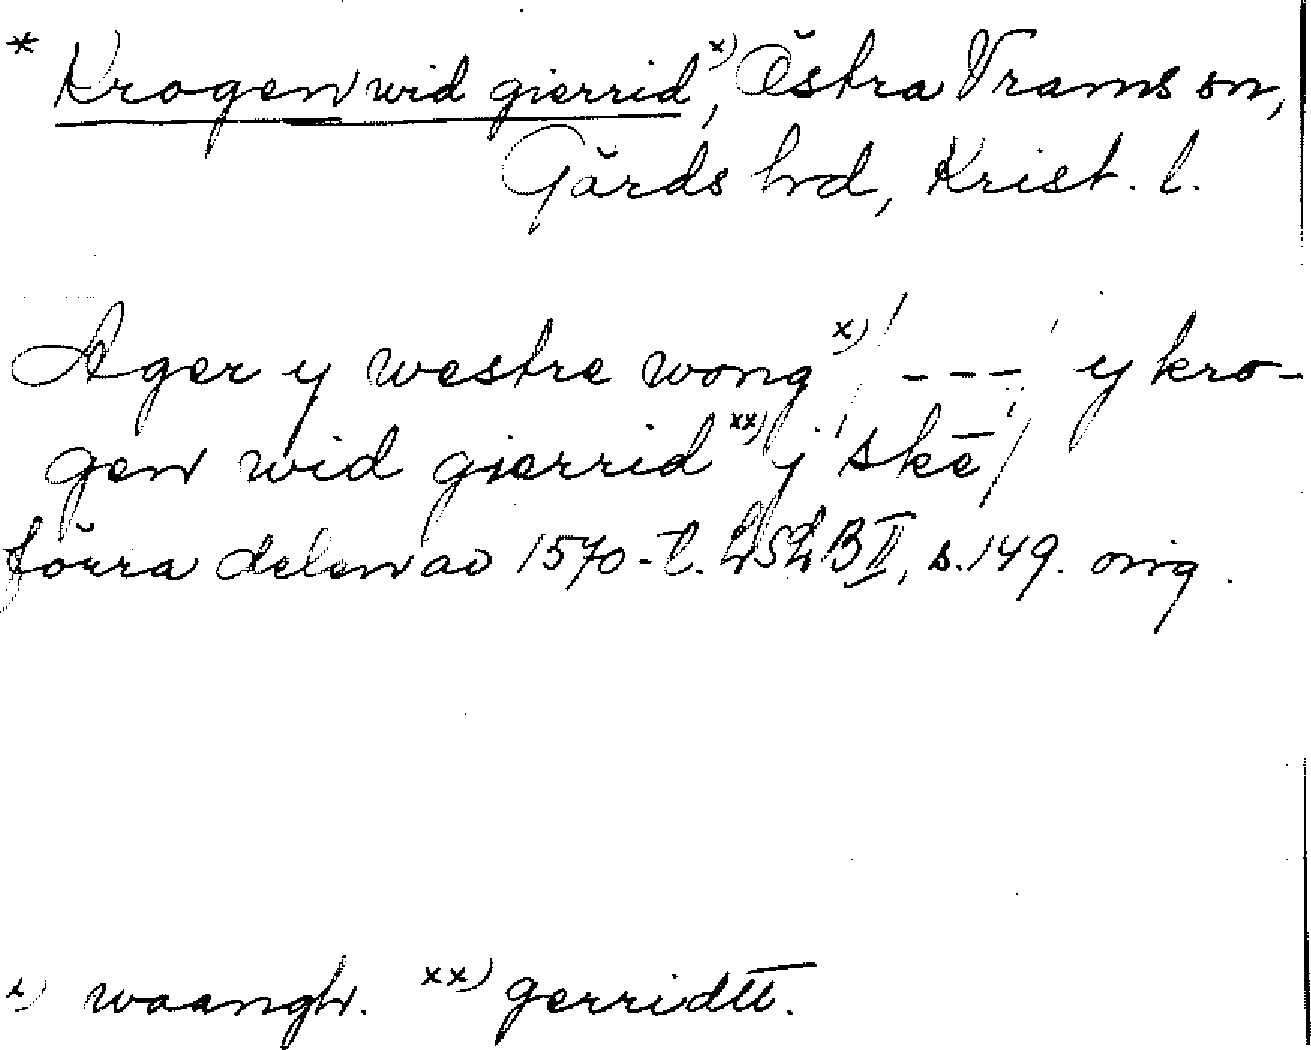 * Krogen wid gierrid x), Östra Vrams sn,
Gärds hd, Krist. l.
Ager y westre wong x) / - - - / y kro-
gen wid gierrid xx) j skē /
förra delen av 1570-t. LSLB II, s. 149. orig.
x) waangh. xx) gerridtt.